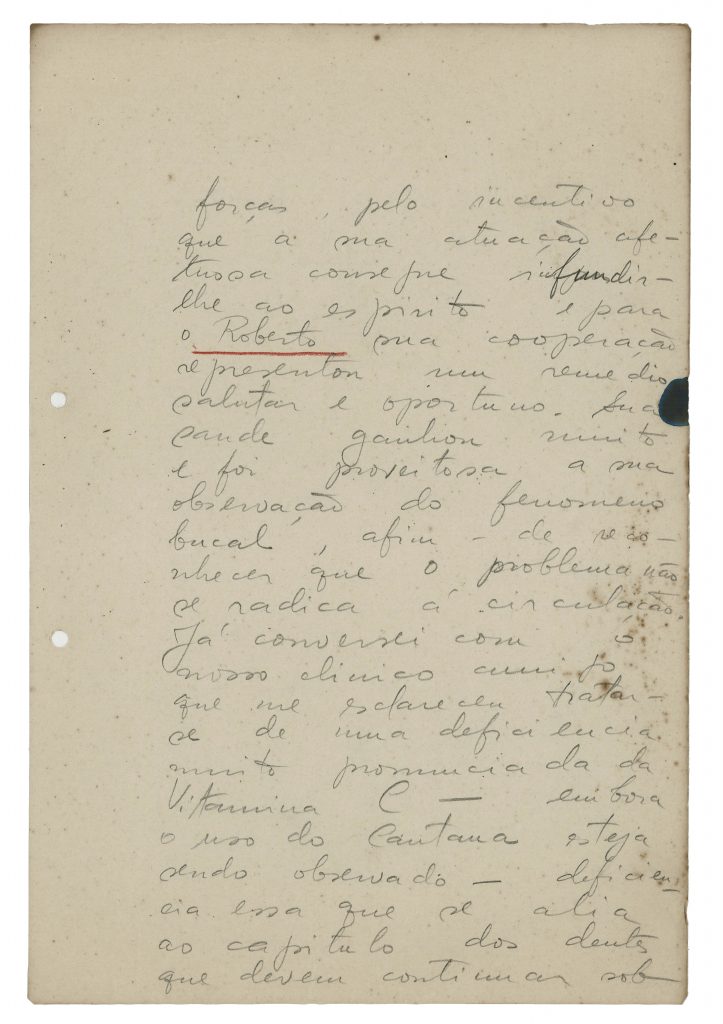 forças, pelo incentivo
que a sua atuação afe-
tuosa consegue infundir-
lhe ao espirito e para
o Roberto sua cooperação
representou um remedio
salutar e oportuno. Sua
saude ganhou muito
e foi proveitosa a sua
observação do fenomeno
bucal, afim-de reco-
nhecer que o problema não
se radica á circulação.
Já conversei com o
nosso clinico amigo
que me esclareceu tratar-
se de uma deficiencia
muito pronunciada da
Vitamina C — embora
o uso do Cantana esteja
sendo observado — deficien-
cia essa que se alia
ao capitulo dos dentes
que devem continuar sob